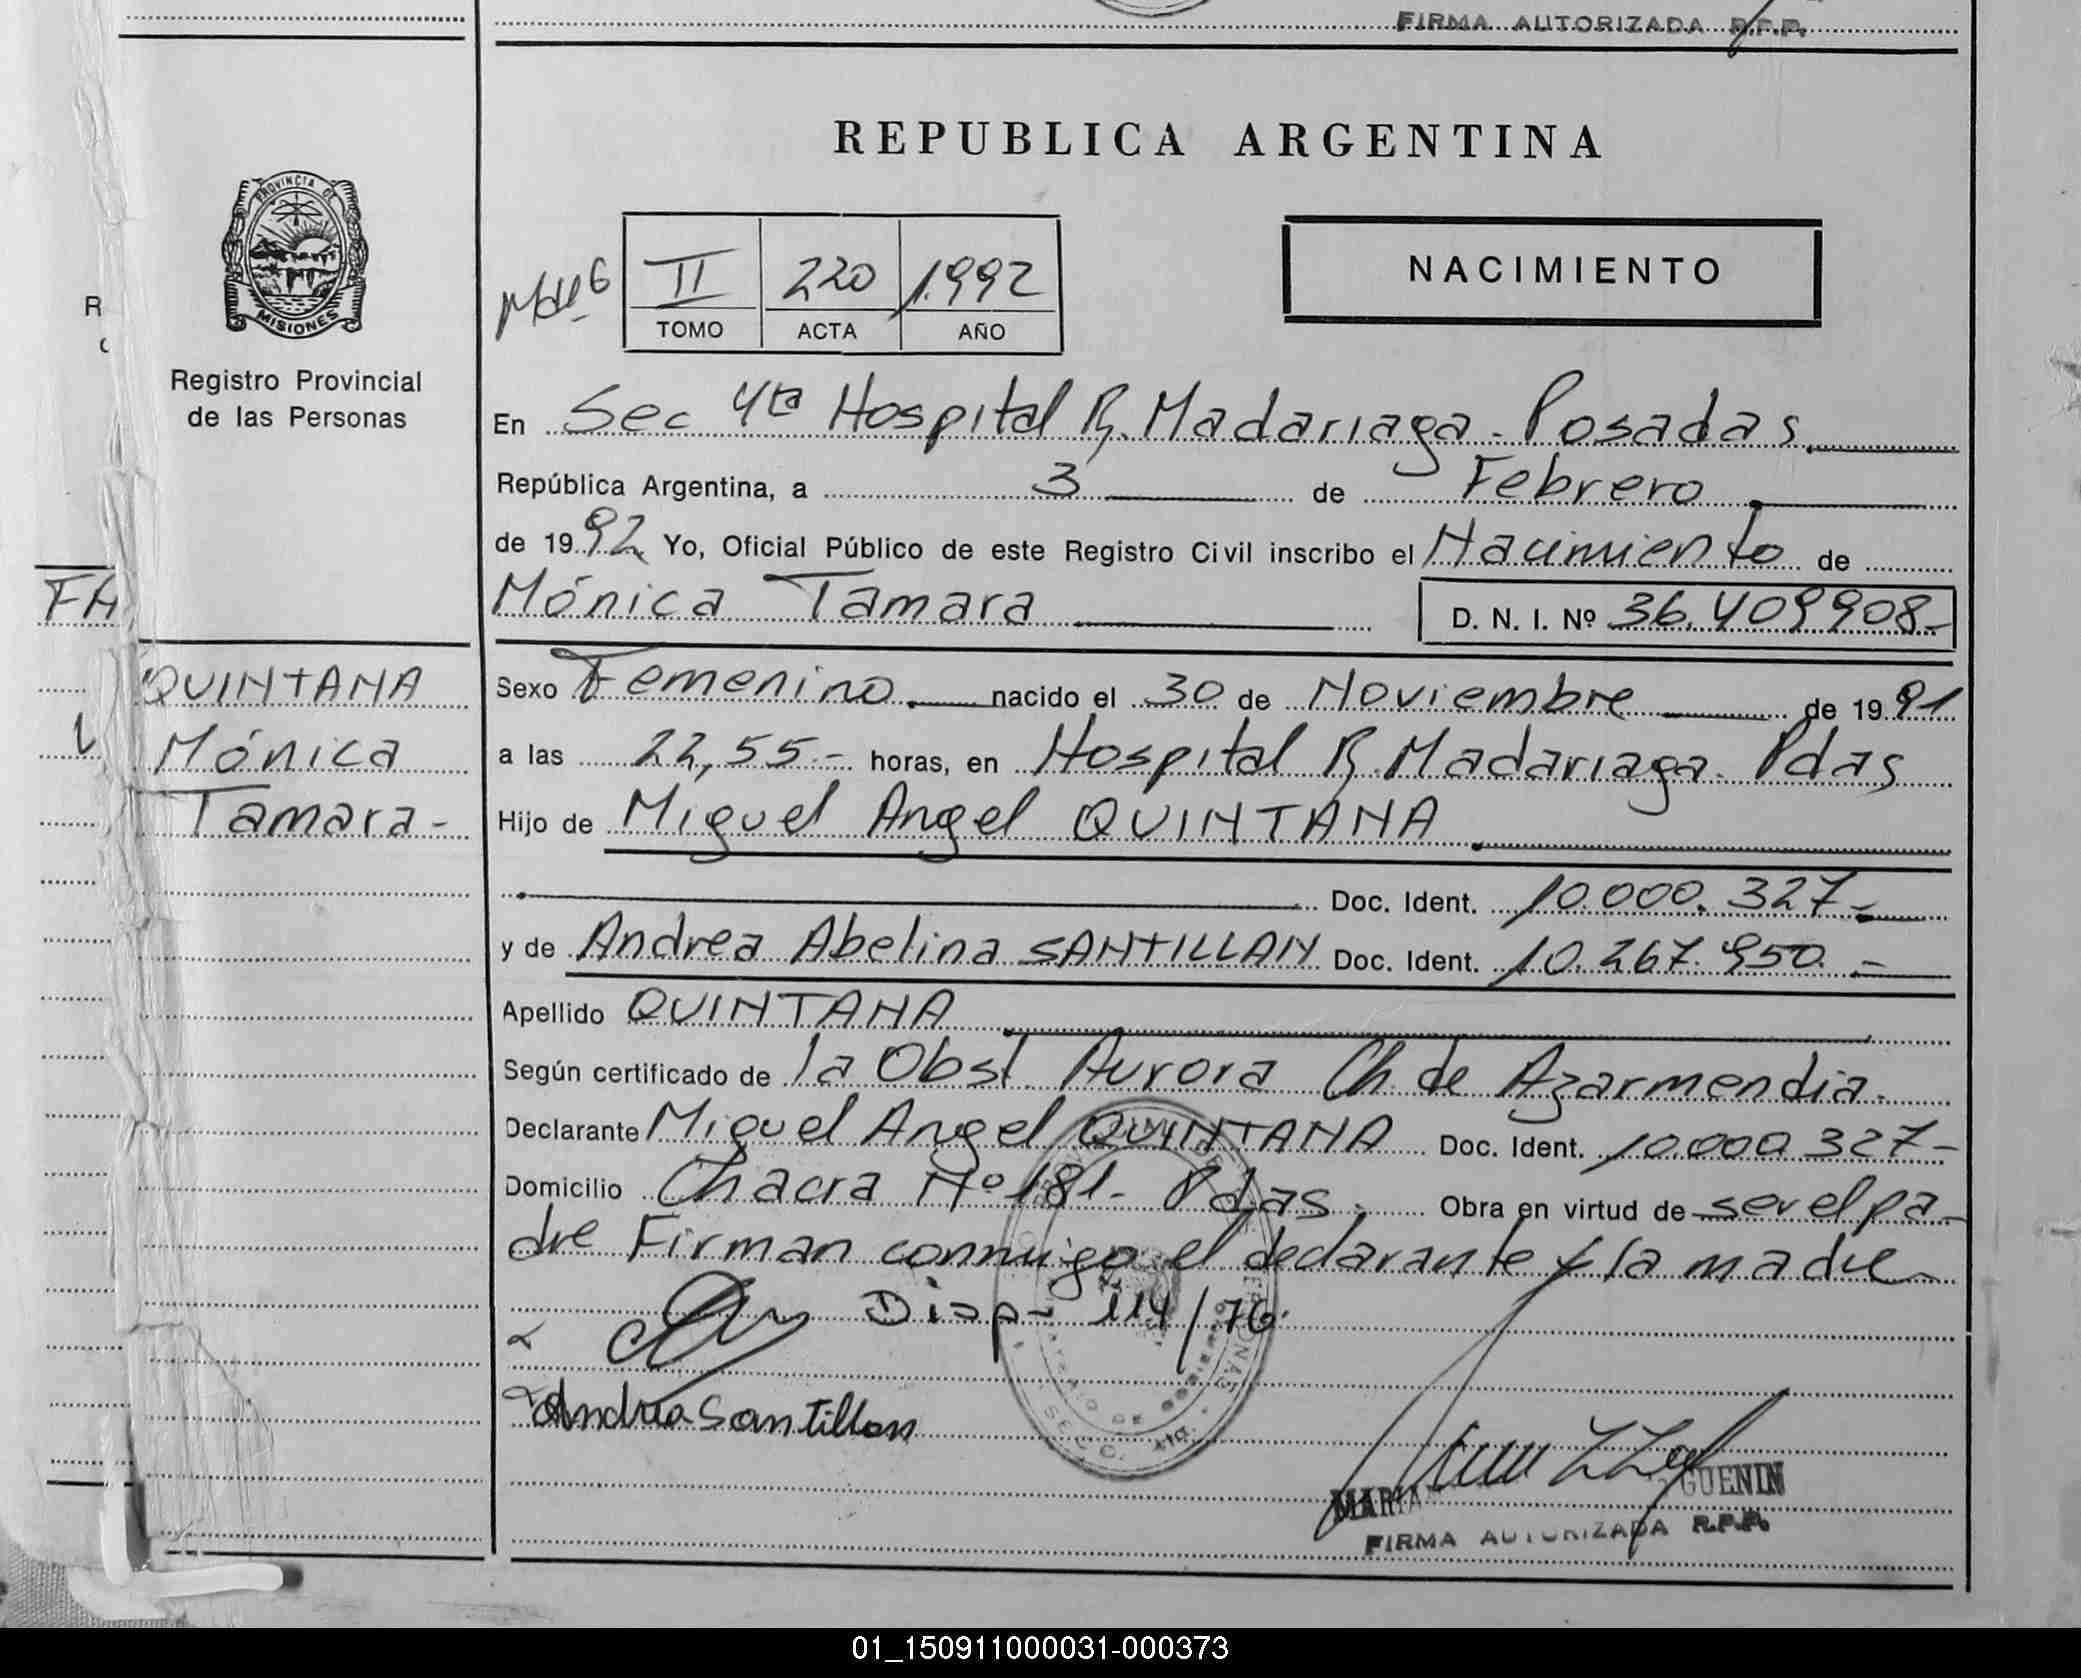 FIRMA AUTORIZADA R.P.P.
REPUBLICA ARGENTINA
PROVINCIA DE
MISIONES
Registro Provincial
de las Personas
II 220 1992
TOMO ACTA AÑO
NACIMIENTO
En Sec 4ta Hospital R. Madariaga - Posadas
República Argentina, a 3 de Febrero
de 1992 Yo, Oficial Público de este Registro Civil inscribo el Nacimiento de
Mónica Tamara D. N. I. Nº 36.409908-
QUINTANA
Mónica
Tamara-
Sexo Femenino nacido el 30 de Noviembre de 1991
a las 22,55.- horas, en Hospital R. Madariaga. Pdas
Hijo de Miguel Angel QUINTANA
Doc. Ident. 10.000.327-
y de Andrea Abelina SANTILLAN Doc. Ident. 10.267.950.-
Apellido QUINTANA
Según certificado de la Obst. Aurora Ch. de Azarmendia.
Declarante Miguel Angel QUINTANA Doc. Ident. 10.000 327-
Domicilio Chacra Nº 181- Pdas. Obra en virtud de ser el pa-
dre Firman conmigo el declarante y la madre
Disp- 114/76.
Andrea Santillan
MARIA GUENIN
FIRMA AUTORIZADA R.P.P.
01_150911000031-000373